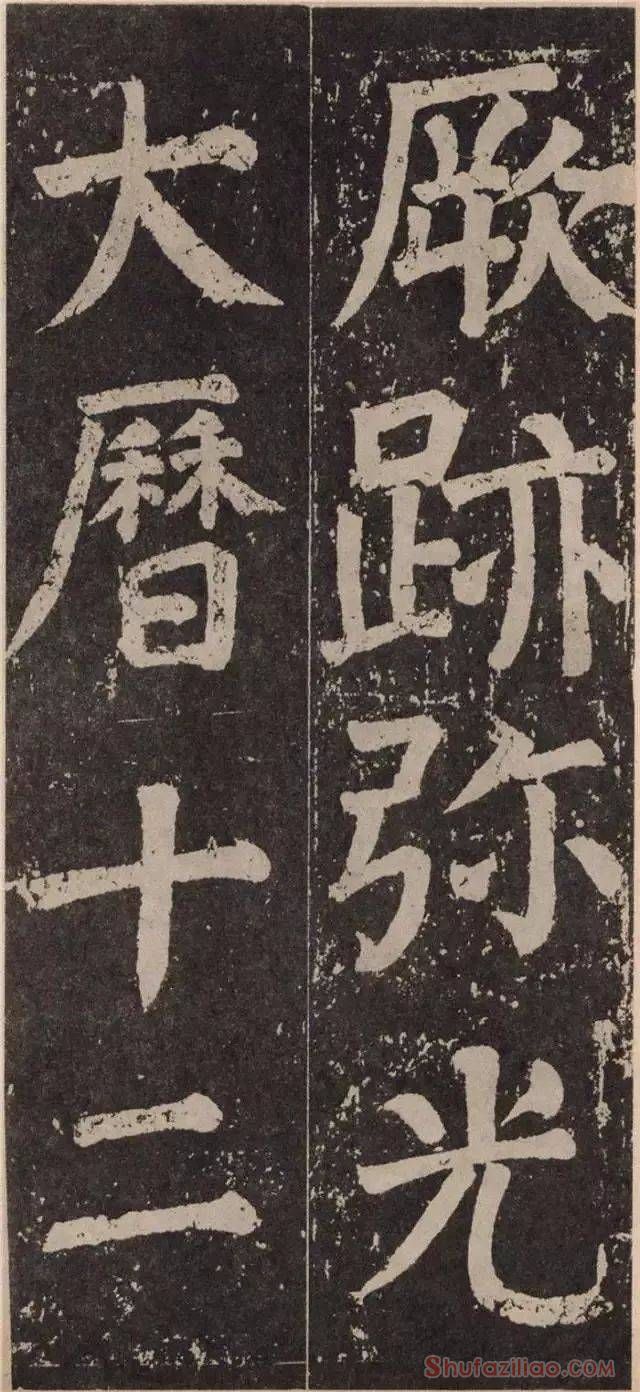 厥跡弥光
大曆十二
Shufaziliao.com